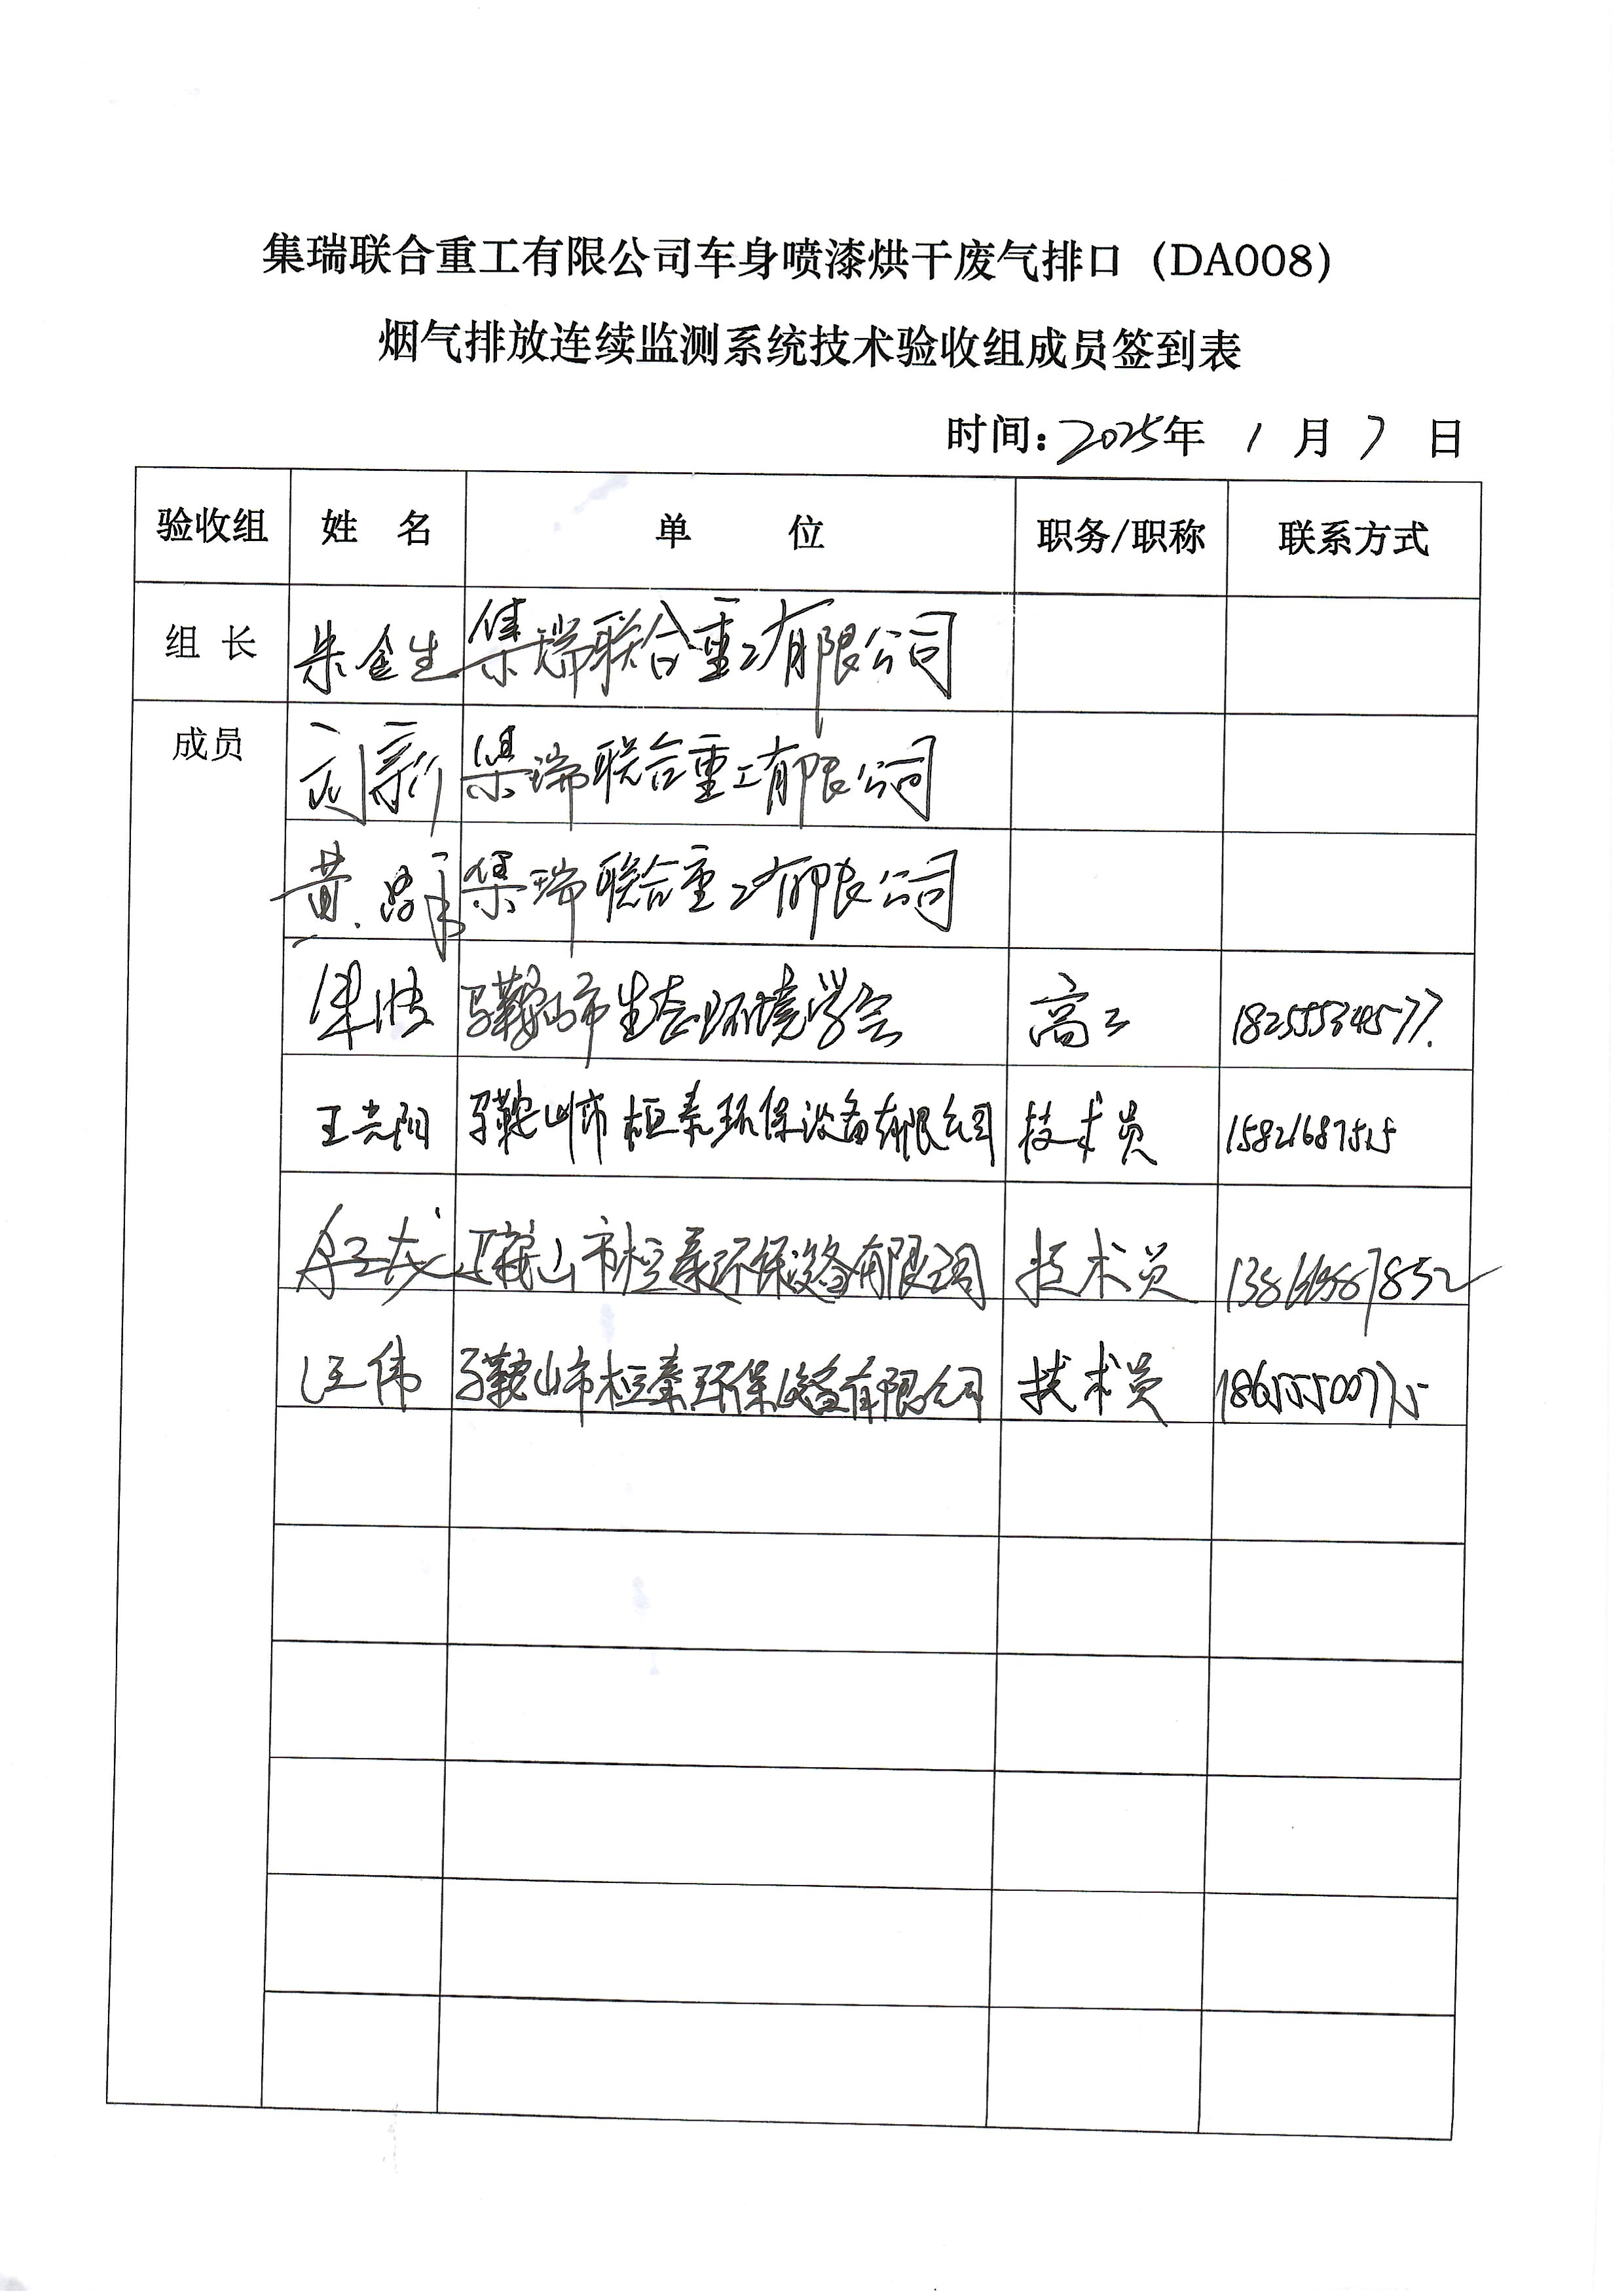 集瑞联合重工有限公司车身喷漆烘干废气排口（DA008）
烟气排放连续监测系统技术验收组成员签到表
时间：2025年 1 月 7 日
验收组 姓 名 单 位 职务/职称 联系方式
组 长 朱金生 集瑞联合重工有限公司
成员 刘新 集瑞联合重工有限公司
黄 集瑞联合重工有限公司
马鞍山市生态环境学会 高工 18255534577
王光阳 马鞍山市桓泰环保设备有限公司 技术员 15821687515
马鞍山市桓泰环保设备有限公司 技术员
汪伟 马鞍山市桓泰环保设备有限公司 技术员 18655500775